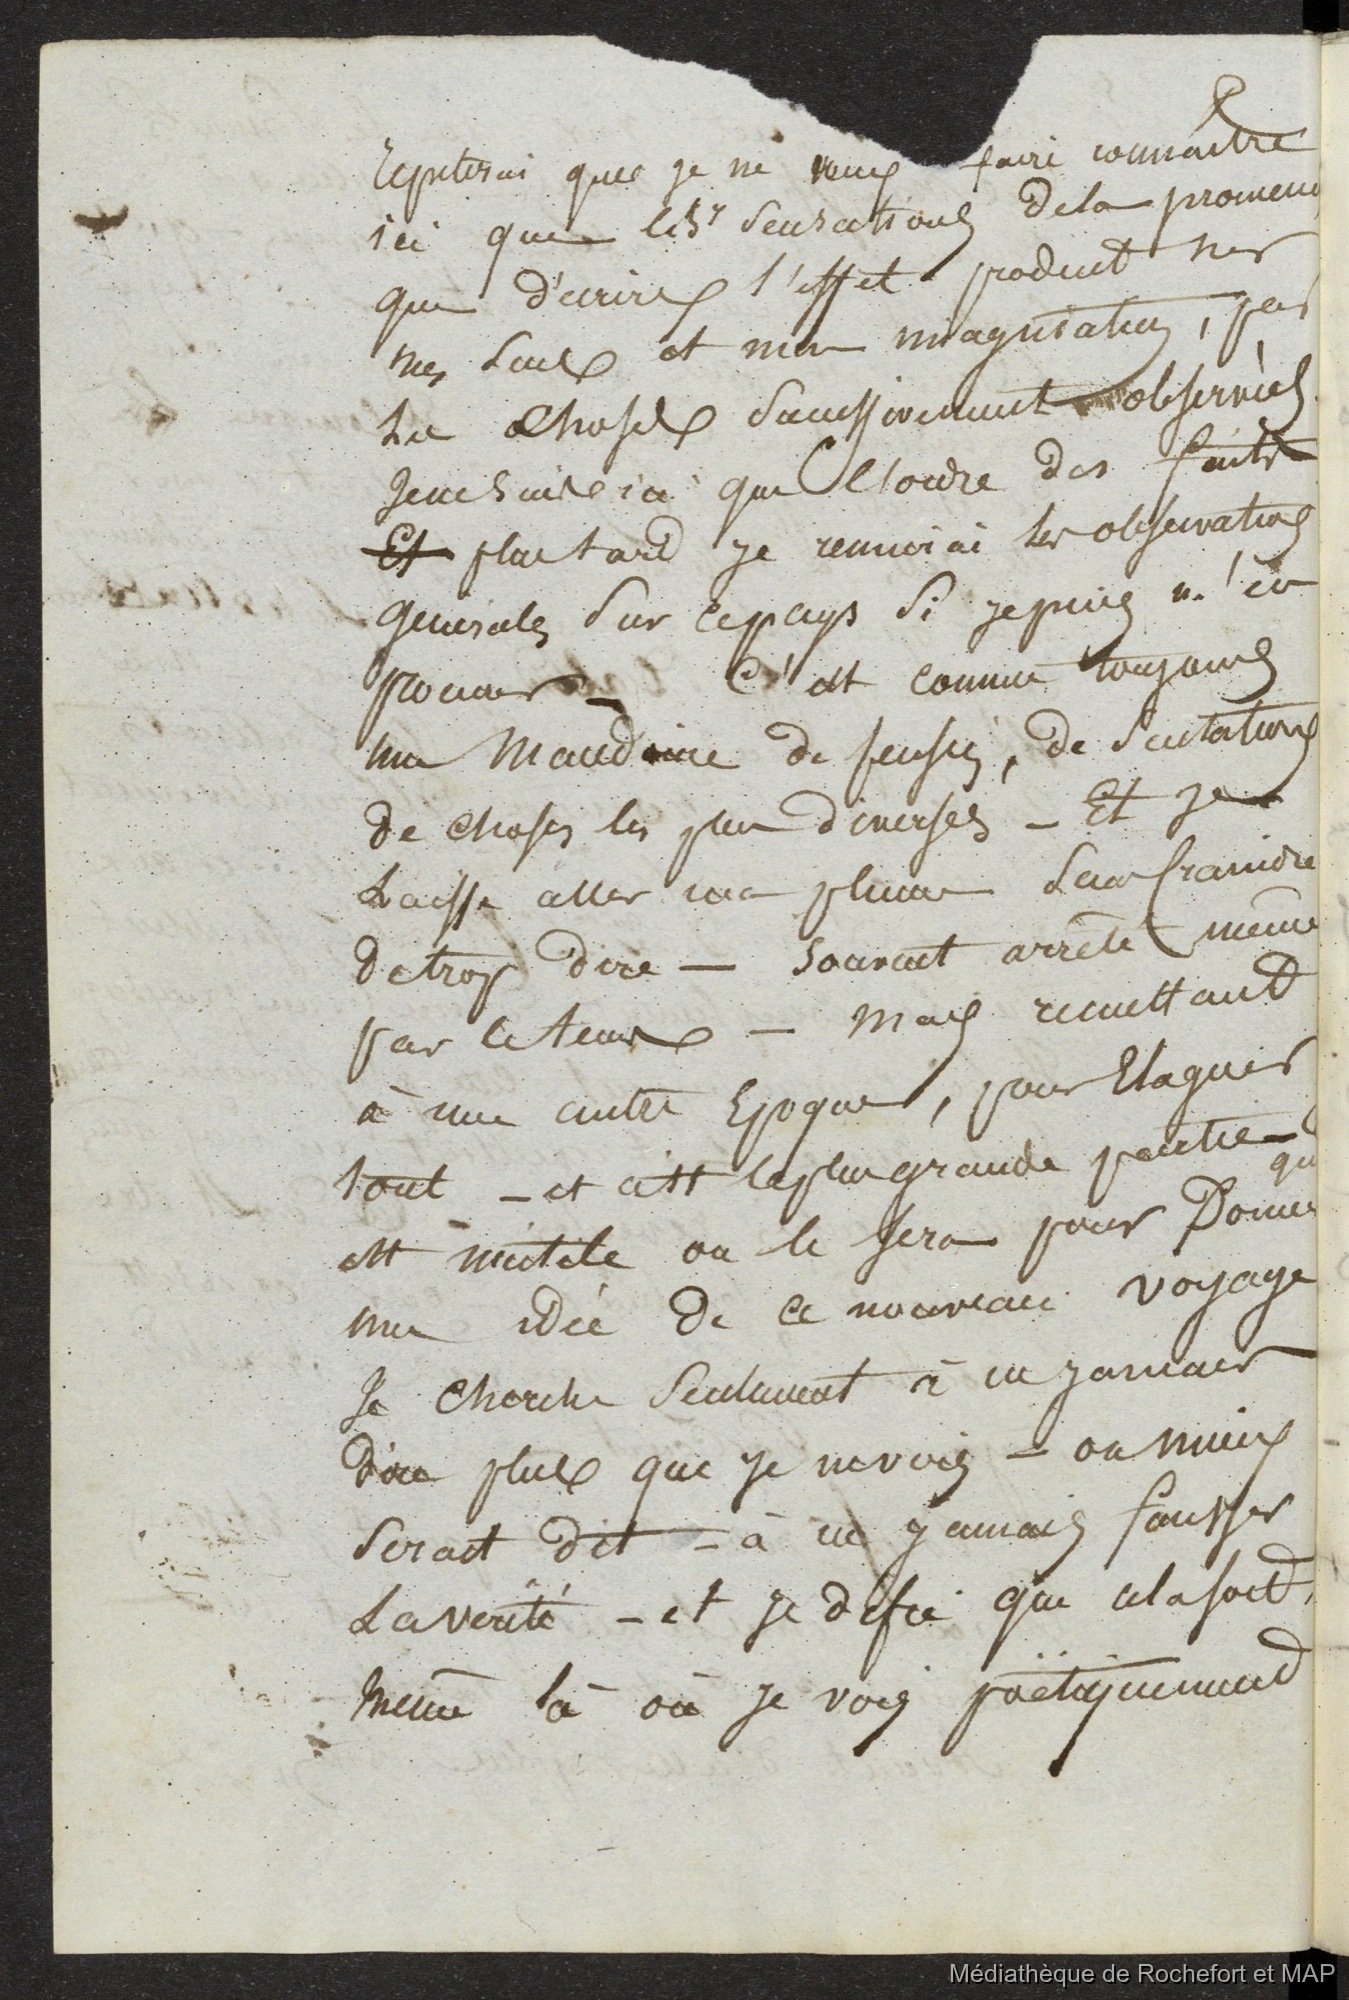 repeterai que je ne veux faire connaitre
ici que les sensations de la promena
que d'ecrire l'effet produit sur
mes sens et mon imagination, par
les choses successivement observées
Je ne suis ici que l'ordre des faits
Et plus tard je reunirai les observations
generales sur ce pays si je puis m'en
procurer _ C'est comme toujours
une de pensées, de sensations
de choses les plus diverses _ Et je
Laisse aller ma plume sans craindre
de trop dire — souvent arrêté même
par le tems — Mais remettant
à une autre Epoque, pour Elaguer
tout _ et c'est la plus grande partie qui
est inutile ou le sera pour Donner
une idée de ce nouveau voyage
Je cherche seulement à ne jamais
dire plus que je ne vois — ou mieux
serait dit — à ne jamais fausser
La verité _ et je defie que cela soit,
même là où je vois poëtiquement
Médiathèque de Rochefort et MAP